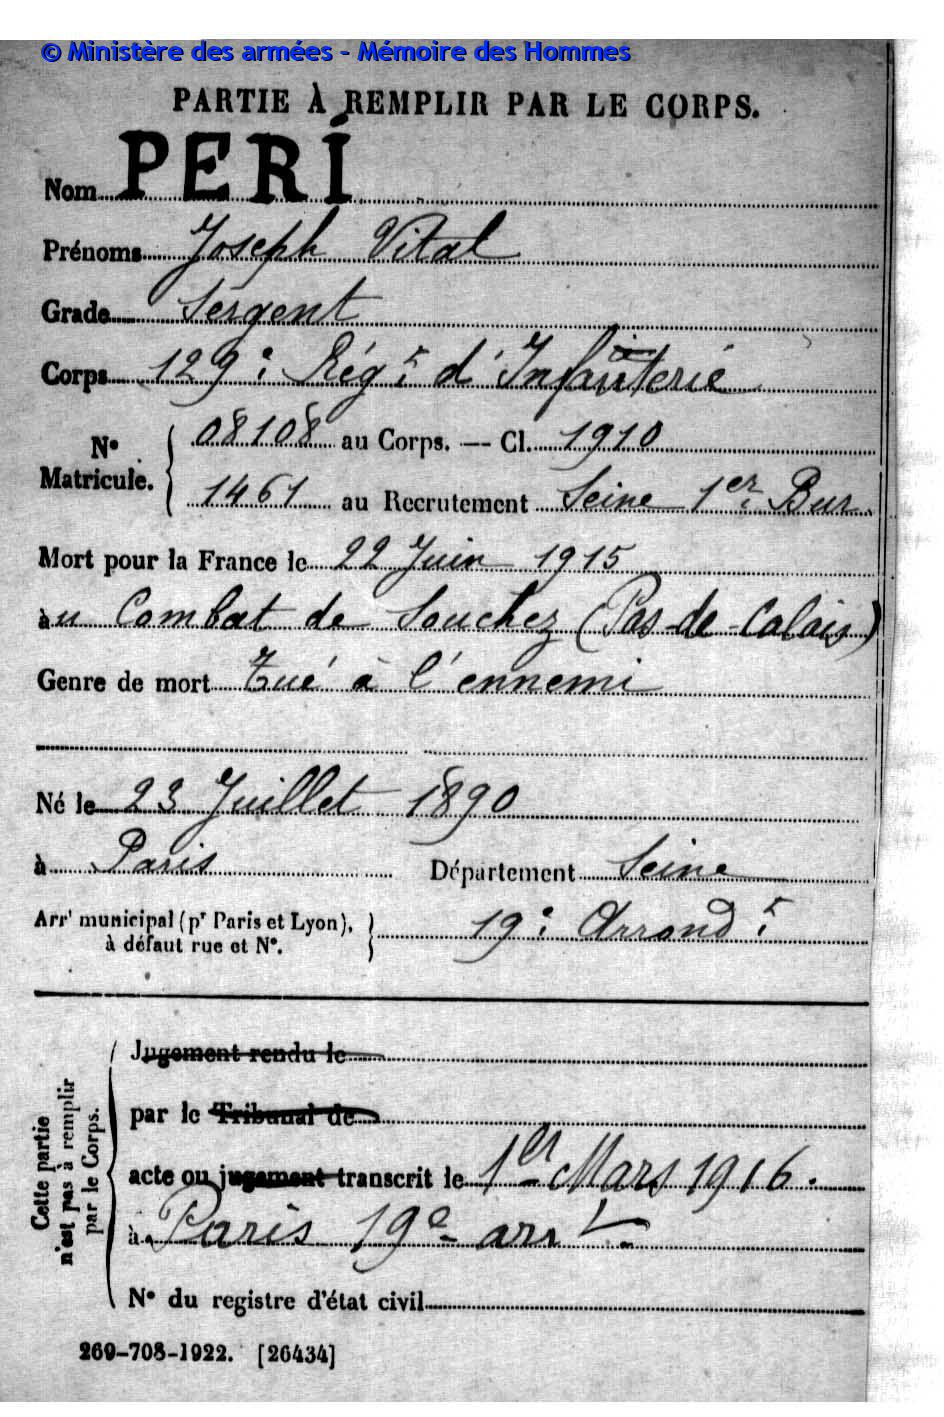 © Ministère des armées - Mémoire des Hommes
PARTIE À REMPLIR PAR LE CORPS.
Nom PERI
Prénoms Joseph Vital
Grade Sergent
Corps 129e Régt d'Infanterie
No Matricule. { 08108 au Corps. — Cl. 1910
1461 au Recrutement Seine 1er Bur.
Mort pour la France le 22 Juin 1915
au Combat de Souchez (Pas-de-Calais)
Genre de mort Tué à l'ennemi
Né le 23 Juillet 1890
à Paris Département Seine
Arrt municipal (pr Paris et Lyon), } 19e Arrondt
à défaut rue et No.
Cette partie n'est pas à remplir par le Corps.
Jugement rendu le
par le Tribunal de
acte ou jugement transcrit le 1er Mars 1916.
à Paris 19e arrt.
No du registre d'état civil
269-708-1922. [26434]